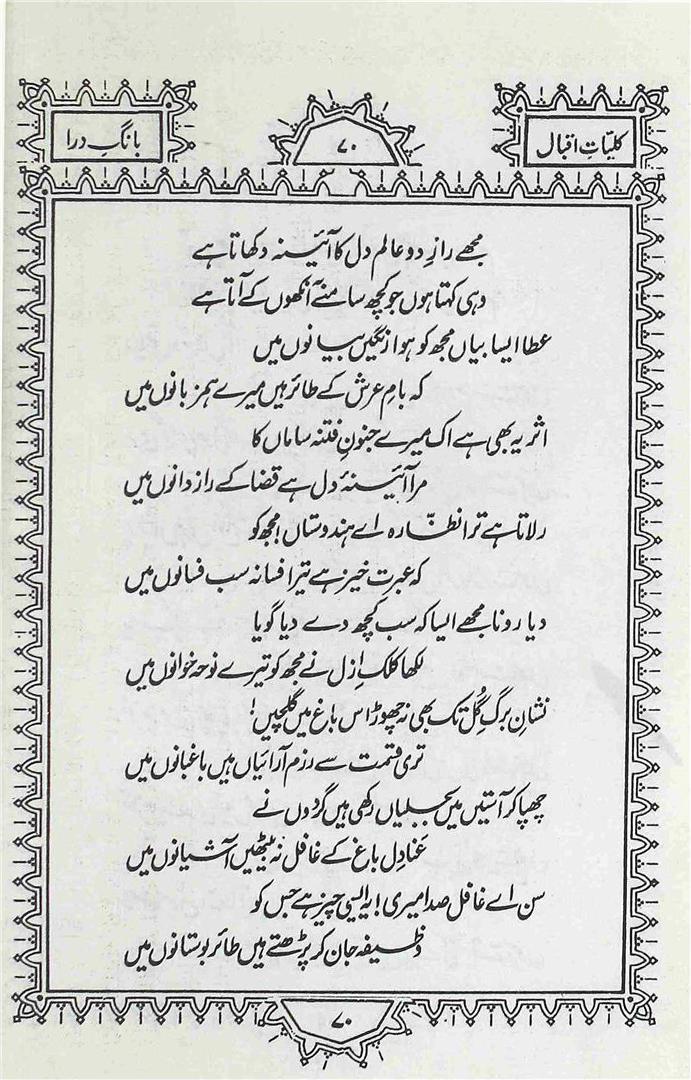 کلیاتِ اقبال
۷۰
بانگِ درا
مجھے رازِ دو عالم دل کا آئینہ دکھاتا ہے
وہی کہتا ہوں جو کچھ سامنے آنکھوں کے آتا ہے
عطا ایسا بیاں مجھ کو ہوا رنگیں بیانوں میں
کہ بامِ عرش کے طائر ہیں میرے ہمزبانوں میں
اثر یہ بھی ہے اک میرے جنونِ فتنہ ساماں کا
مرا آئینۂ دل ہے قضا کے رازدانوں میں
رلاتا ہے ترا نظّارہ اے ہندوستاں! مجھ کو
کہ عبرت خیز ہے تیرا فسانہ سب فسانوں میں
دیا رونا مجھے ایسا کہ سب کچھ دے دیا گویا
لکھا کلکِ ازل نے مجھ کو تیرے نوحہ خوانوں میں
نشانِ برگِ گُل تک بھی نہ چھوڑ اس باغ میں گلچیں!
تری قسمت سے رزم آرائیاں ہیں باغبانوں میں
چھپا کر آستیں میں بجلیاں رکھی ہیں گردوں نے
عَنادِل باغ کے غافل نہ بیٹھیں آشیانوں میں
سن اے غافل صدا میری! یہ ایسی چیز ہے جس کو
وظیفہ جان کر پڑھتے ہیں طائر بوستانوں میں
۷۰